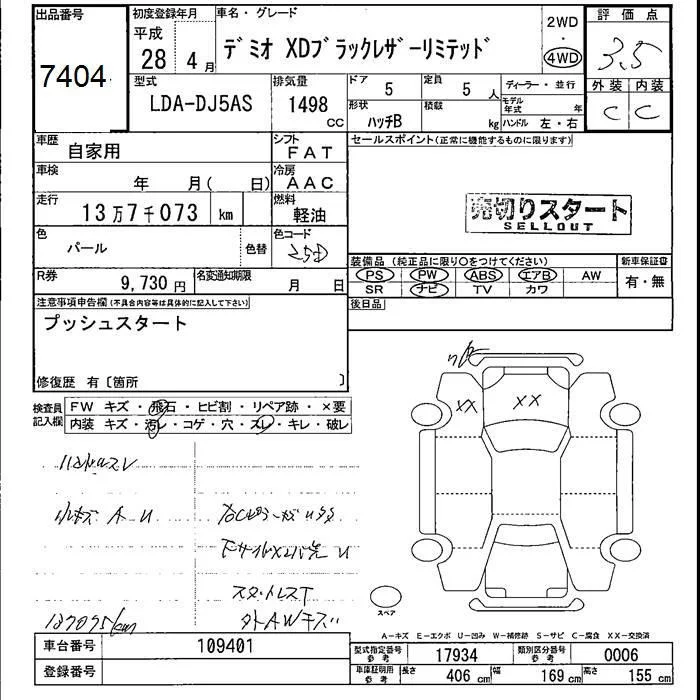 出品番号 初度登録年月 車名・グレード 2WD 評価点
7404 平成 28年 4月 デミオ XDブラックレザーリミテッド 4WD 3.5
型式 排気量 ドア 定員 ディーラー・並行 外装 内装
LDA-DJ5AS 1498 CC 5 5人 モデル年式 年 C C
形状 ハッチB 積載 kg ハンドル 左・右
車歴 自家用 シフト FAT セールスポイント(正常に機能するものに限ります)
車検 年 月( 日) 冷房 AAC
走行 13万7千073 km 燃料 軽油 売切りスタート
SELLOUT
色 パール 色替 色コード 25D
装備品(純正品に限り○をつけてください) 新車保証書
R券 9,730円 名変通知期限 月 日 PS PW ABS エアB AW 有・無
SR ナビ TV カワ
注意事項申告欄(不具合内容等は具体的に記入して下さい) 後日品
プッシュスタート
修復歴 有〔箇所 〕
検査員記入欄 FW キズ・飛石・ヒビ割・リペア跡・×要
内装 キズ・汚レ・コゲ・穴・スレ・キレ・破レ
XX XX
小キズ A U
スタットレスT
137075km 外AWキズ
スペア
A-キズ E-エクボ U-凹み W-補修跡 S-サビ C-腐食 XX-交換済
車台番号 109401 型式指定番号 参考 17934 類別区分番号 参考 0006
登録番号 車庫証明 参考 長さ 406 cm 幅 169 cm 高さ 155 cm